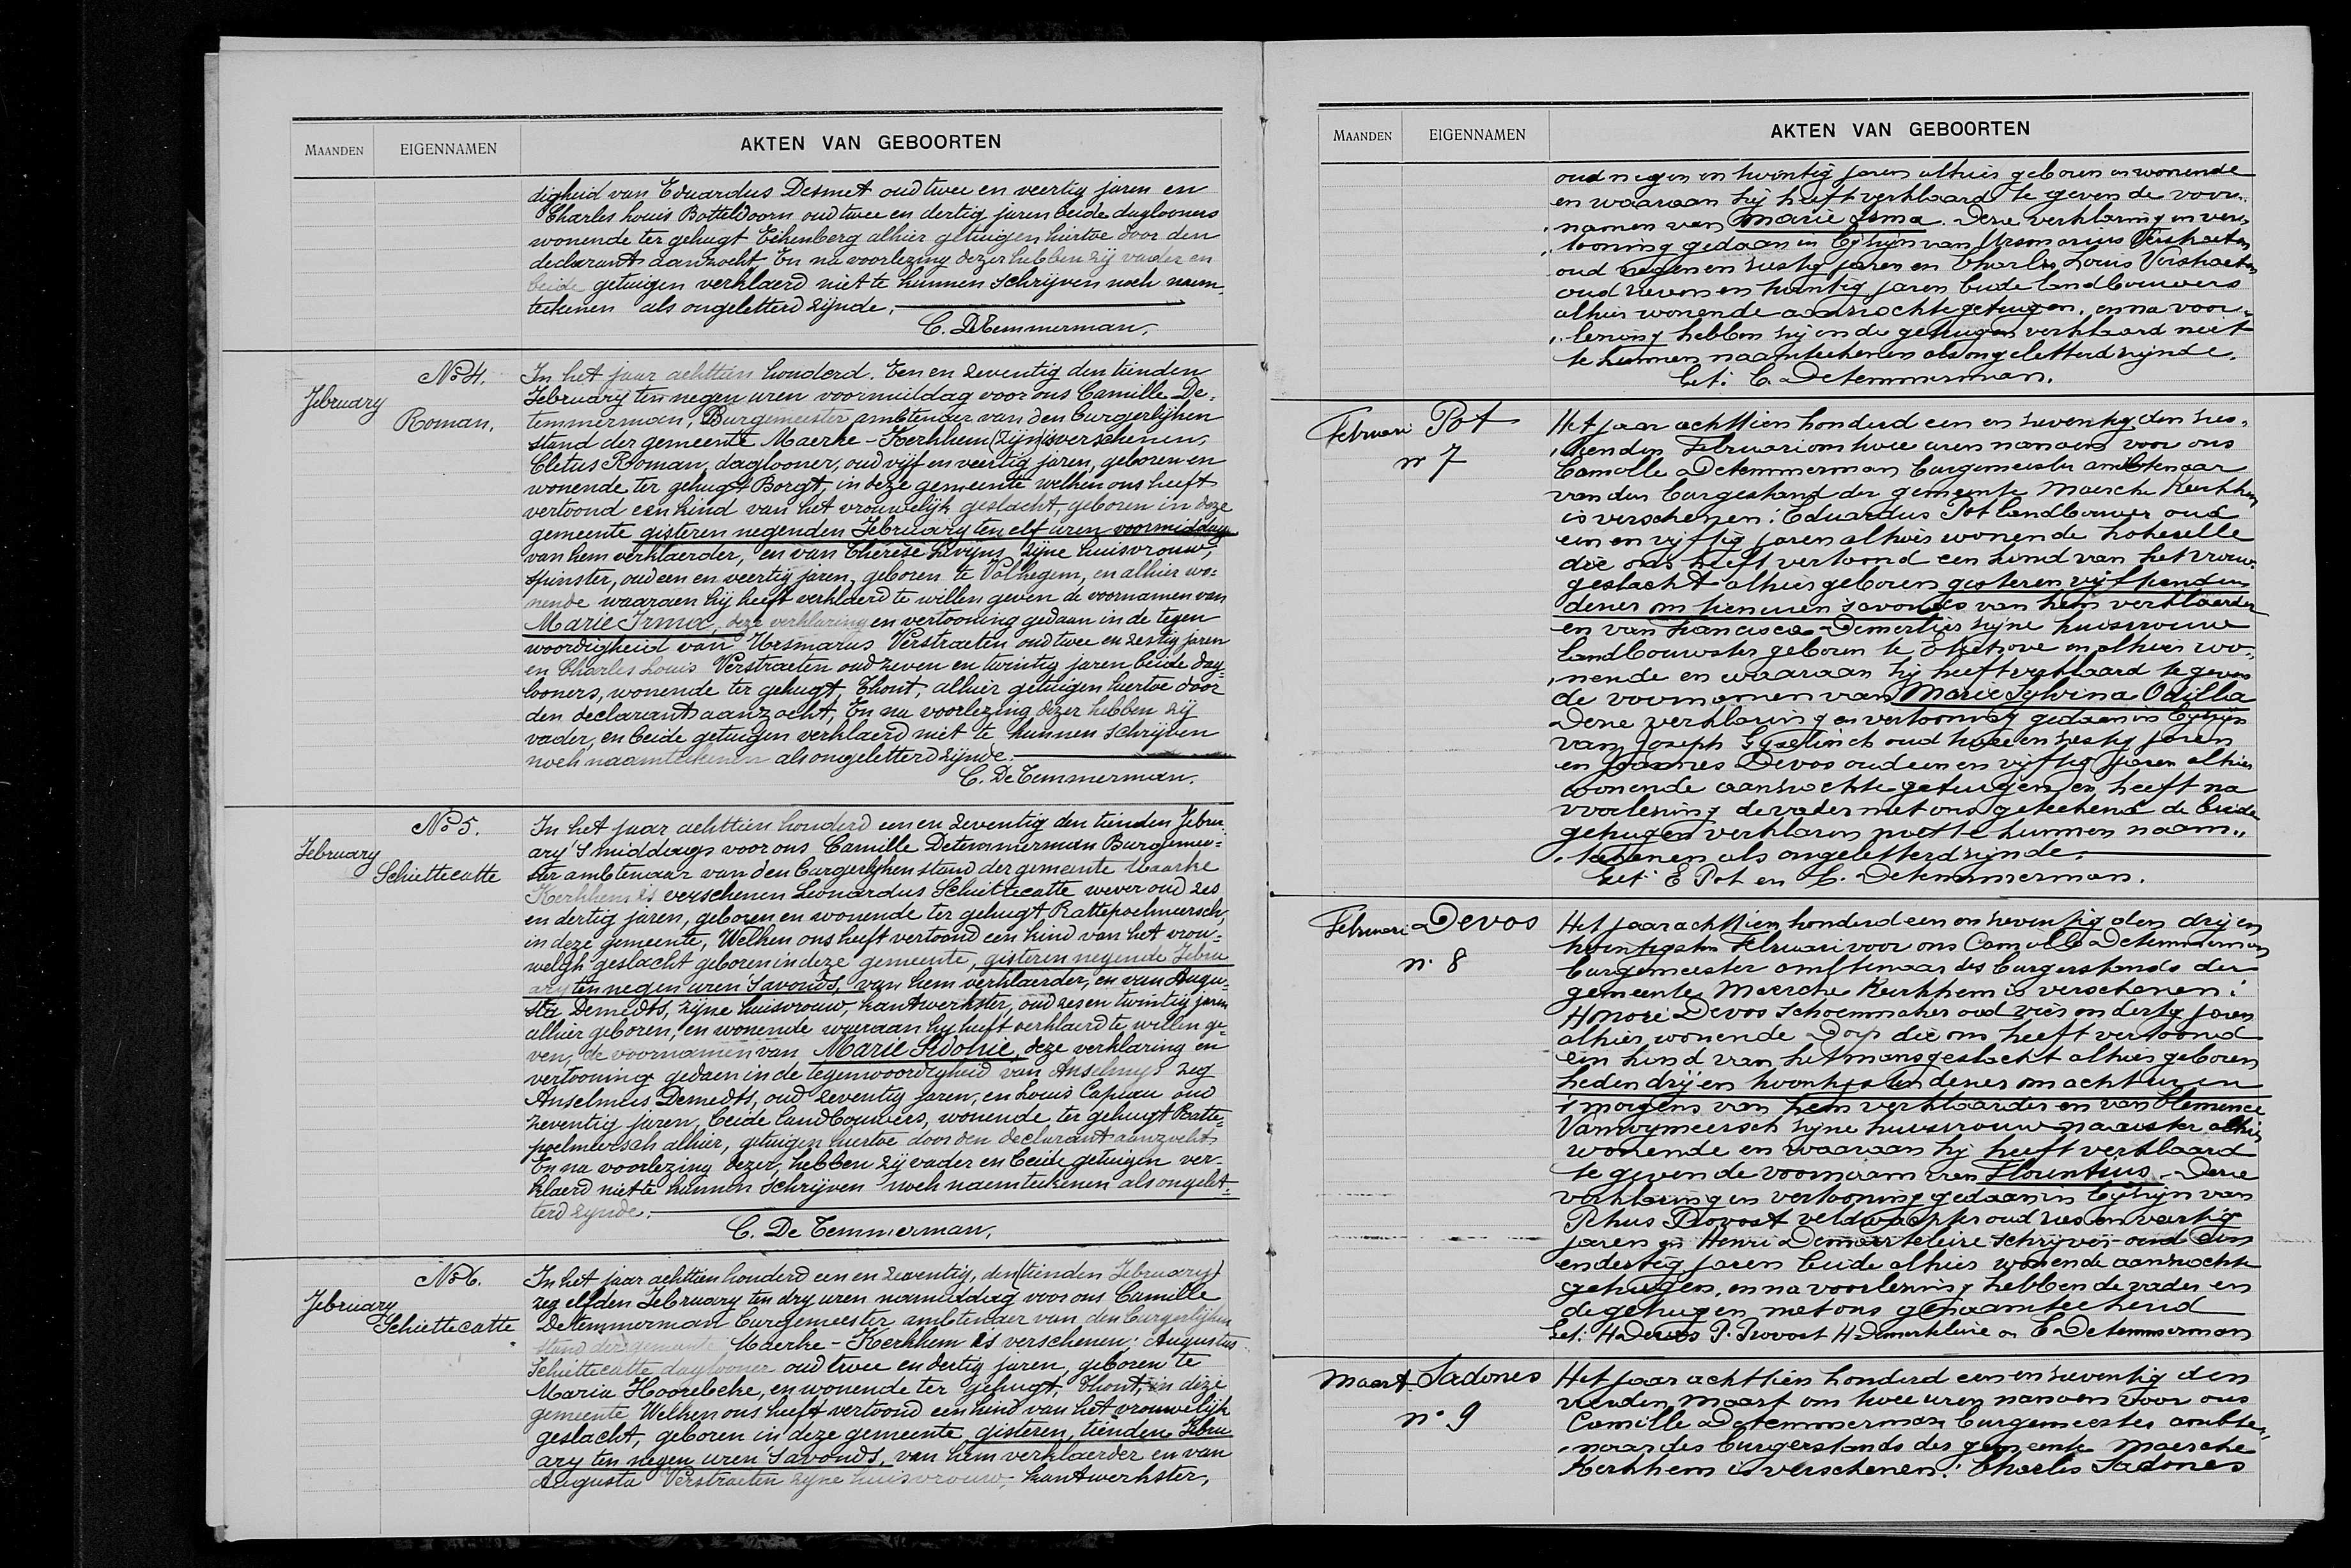 MAANDEN EIGENNAMEN AKTEN VAN GEBOORTEN
digheid van Eduardus Desmet oud twee en veertig jaren en
Charles Louis Botteldoorn oud twee en dertig jaren beide daglooners
wonende ter gehugt Eikenberg alhier getuigen hiertoe door den
declarant aanzocht En na voorlezing dezer hebben zij vader en
beide getuigen verklaerd niet te kunnen schrijven noch naem
teekenen als ongeletterd zijnde.
C. DeTemmerman.
February
No 4.
Roman.
In het jaar achttien honderd. Een en zeventig den tienden
February ten negen uren voormiddag voor ons Camille De=
temmerman, Burgemeester ambtenaar van den burgerlijken
stand der gemeente Maerke-Kerkhem (zijn) is verschenen,
Cletus Roman, daglooner, oud vijf en veertig jaren, geboren en
wonende ter gehugt Borgt, in deze gemeente welken ons heeft
vertoond een kind van het vrouwelijk geslacht, geboren in deze
gemeente gisteren negenden February ten elf uren voormiddag
van hem verklaerder, en van Therese zijne huisvrouw,
spinster, oud een en veertig jaren, geboren te Volkegem, en alhier wo=
nende waaraen hij heeft verklaerd te willen geven de voornamen van
Marie Irma, deze verklaring en vertooning gedaan in de tegen
woordigheid van Ursmarus Verstraeten oud twee en zestig jaren
en Charles Louis Verstraeten oud zeven en twintig jaren beide dag=
looners, wonende ter gehugt, Thont, alhier getuigen hiertoe door
den declarant aanzocht, En na voorlezing dezer hebben zij
vader, en beide getuigen verklaerd niet te kunnen schrijven
noch naamteekenen als ongeletterd zijnde.
C. DeTemmerman.
February
No 5.
Schiettecatte
In het jaar achttien honderd een en zeventig den tienden Febru=
ary 's middags voor ons Camille Detemmerman Burgemee=
ster ambtenaar van den burgerlijken stand der gemeente Maarke
Kerkhem is verschenen Leonardus Schiettecatte wever oud zes
en dertig jaren, geboren en wonende ter gehugt, Rattepoelmeersch,
in deze gemeente, Welken ons heeft vertoond een kind van het vrou=
welijk geslacht geboren in deze gemeente, gisteren negende Febru
ary ten negen uren 'savonds, van hem verklaerder, en van Augu=
sta Demedts, zijne huisvrouw, kantwerkster, oud zes en twintig jaren
alhier geboren, en wonende waaraan hij heeft verklaerd te willen ge=
ven, de voornamen van Marie Sidonie, deze verklaring en
vertooning gedaen in de tegenwoordigheid van Anselmus zeg
Anselmus Demedts, oud zeventig jaren, en Louis Capiau oud
zeventig jaren, beide landbouwers, wonende ter gehugt Ratte=
poelmeersch alhier, getuigen hiertoe door den declarant aanzocht
En na voorlezing dezer, hebben zij vader en beide getuigen ver=
klaerd niet te kunnen schrijven noch naemteekenen als ongelet=
terd zijnde.
C. De Temmerman.
February
No 6.
Schiettecatte
In het jaar achttien honderd een en zeventig, den (tienden February)
zeg elfden February ten dry uren namiddag voor ons Camille
Detemmerman burgemeester ambtenaer van den burgerlijken
stand der gemeente Maerke-Kerkhem is verschenen; Augustus
Schiettecatte daglooner oud twee en dertig jaren, geboren te
Maria Hoorebeke, en wonende ter gehugt, Thont, in deze
gemeente Welken ons heeft vertoond een kind van het vrouwelijk
geslacht, geboren in deze gemeente gisteren, tienden Febru
ary ten negen uren 'savonds, van hem verklaerder en van
Augusta Verstraeten zijne huisvrouw, kantwerkster,
MAANDEN EIGENNAMEN AKTEN VAN GEBOORTEN
oud negen en twintig jaren alhier geboren en wonende
en waaraan hij heeft verklaard te geven de voor-
namen van Marie Irma. Deze verklaring en ver-
tooning gedaan in bijzijn van Ursmarius Verstraeten
oud negen en sestig jaren en Charles Louis Verstraeten
oud zeven en twintig jaren beide landbouwers
alhier wonende aanzochte getuigen. en na voor-
lezing hebben zij en de getuigen verklaard niet
te kunnen naamteekenen als ongeletterd zijnde.
Get. C. Detemmerman.
Februari Pot
nr 7
Het jaar achttien honderd een en zeventig den zes-
tienden Februari om twee uren namoen voor ons
Camille Detemmerman burgemeester ambtenaar
van den burgestand der gemeente Maercke Kerkhem
is verschenen: Eduardus Pot landbouwer oud
een en vijftig jaren alhier wonende
die ons heeft vertoond een kind van het vrouw.
geslacht alhier geboren gisteren vijftienden
dezer om tien uren savonds van hem verklaarder
en van Francisca zijne huisvrouw
landbouwster geboren te Etichove en alhier wo-
nende en waaraan hij heeft verklaard te geven
de voornamen van Marie Sylvina Odilla
Deze verklaring en vertooning gedaan in bijzijn
van Joseph Gyselinck oud twee en sestig jaren
en Joannes Devos oud een en vijftig jaren alhier
wonende aanzochte getuigen en heeft na
voorlezing de vader met ons geteekend de beide
getuigen verklaren niet te kunnen naam-
teekenen als ongeletterd zijnde.
Get: E Pot en C. Detemmerman.
Februari Devos
n. 8
Het jaar achttien honderd een en zeventig den drij en
twintigsten Februari voor ons Camille Detemmerman
burgemeester ambtenaar des burgerstands der
gemeente Maercke Kerkhem is verschenen:
Honoré Devos schoenmaker oud vier en dertig jaren
alhier wonende Dorp die ons heeft vertoond
een kind van het mans geslacht alhier geboren
heden drij en twintigsten dezer om acht uren
's morgens van hem verklaarder en van Clemence
Vanwymeersch zijne huisvrouw naaister alhier
wonende en waaraan hij heeft verklaard
te geven de voornaam van Florentius. Deze
verklaring en vertooning gedaan in bijzijn van
Petrus Provost veldwachter oud zes en veertig
jaren en Henri Demarteleire schrijver oud een
en dertig jaren beide alhier wonende aanzochte
getuigen, en na voorlezing hebben de vader en
de getuigen met ons genaamteekend
Get: H Devos P. Provost H Demarteleire en C Detemmerman
Maart Sadones
n° 9
Het jaar achttien honderd een en zeventig den
vierden Maart om twee uren namoen voor ons
Camille Detemmerman burgemeester ambte-
naar des burgerstands der gemeente Maercke
Kerkhem is verschenen: Charles Sadones